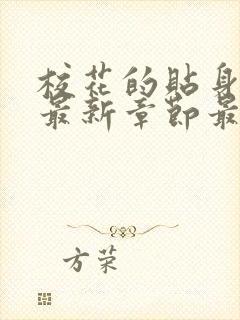 校花的贴身
最新章节最
方荣